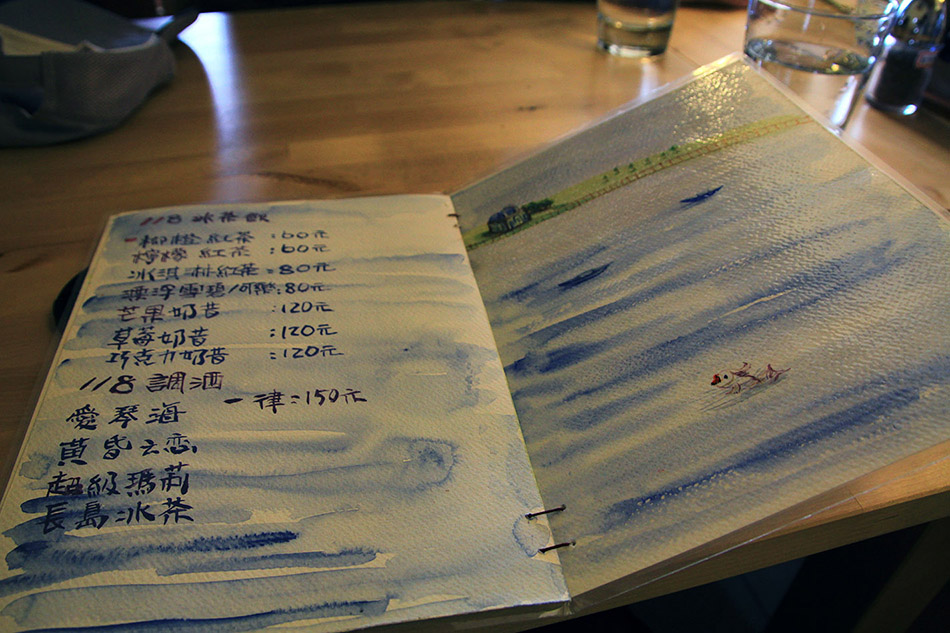 118 冰茶飲
柳橙紅茶 :60元
檸檬紅茶 :60元
冰淇淋紅茶:80元
漂浮雪碧/可樂:80元
芒果奶昔 :120元
草莓奶昔 :120元
巧克力奶昔 :120元
118 調酒
一律:150元
愛琴海
黃昏之戀
超級瑪莉
長島冰茶